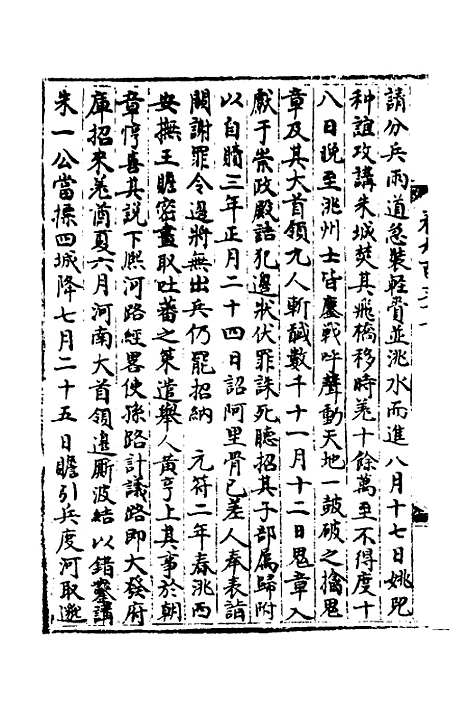 請分兵兩道急裝輕賫並洮水而進八月十七日姚兕
种誼攻講朱城焚其飛橋移時羌十餘萬至不得度十
八日晚至洮州士皆鏖戰呼聲動天地一鼓破之擒鬼
章及其大首領九人斬馘數千十一月十二日鬼章入
獻于崇政殿詰犯邊狀伏罪誅死聽招其子部屬歸附
以自贖三年正月二十四日詔阿里骨已差人奉表詣
闕謝罪令邊將無出兵仍罷招納 元符二年春洮西
安撫王贍密畫取吐蕃之策遣舉人黃亨上其事於朝
章惇喜其說下熙河路經畧使孫路計議路即大發府
庫招來羌酋夏六月河南大首領邊厮波結以錯鑿講
朱一公當摽四城降七月二十五日贍引兵度河取邈